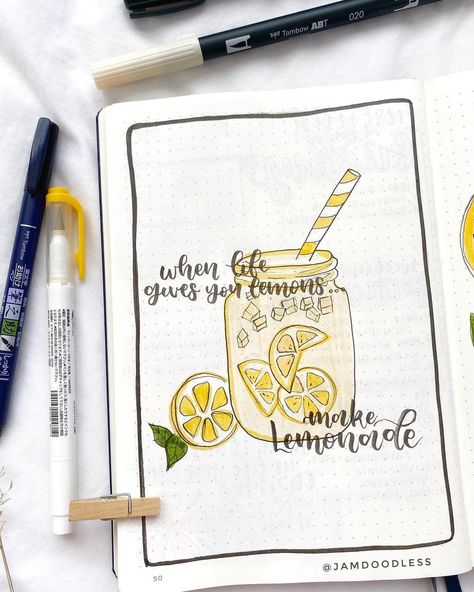 Tombow ABT 020
when life
gives you lemons...
make
Lemonade
Tombow
50
@JAMDOODLESS